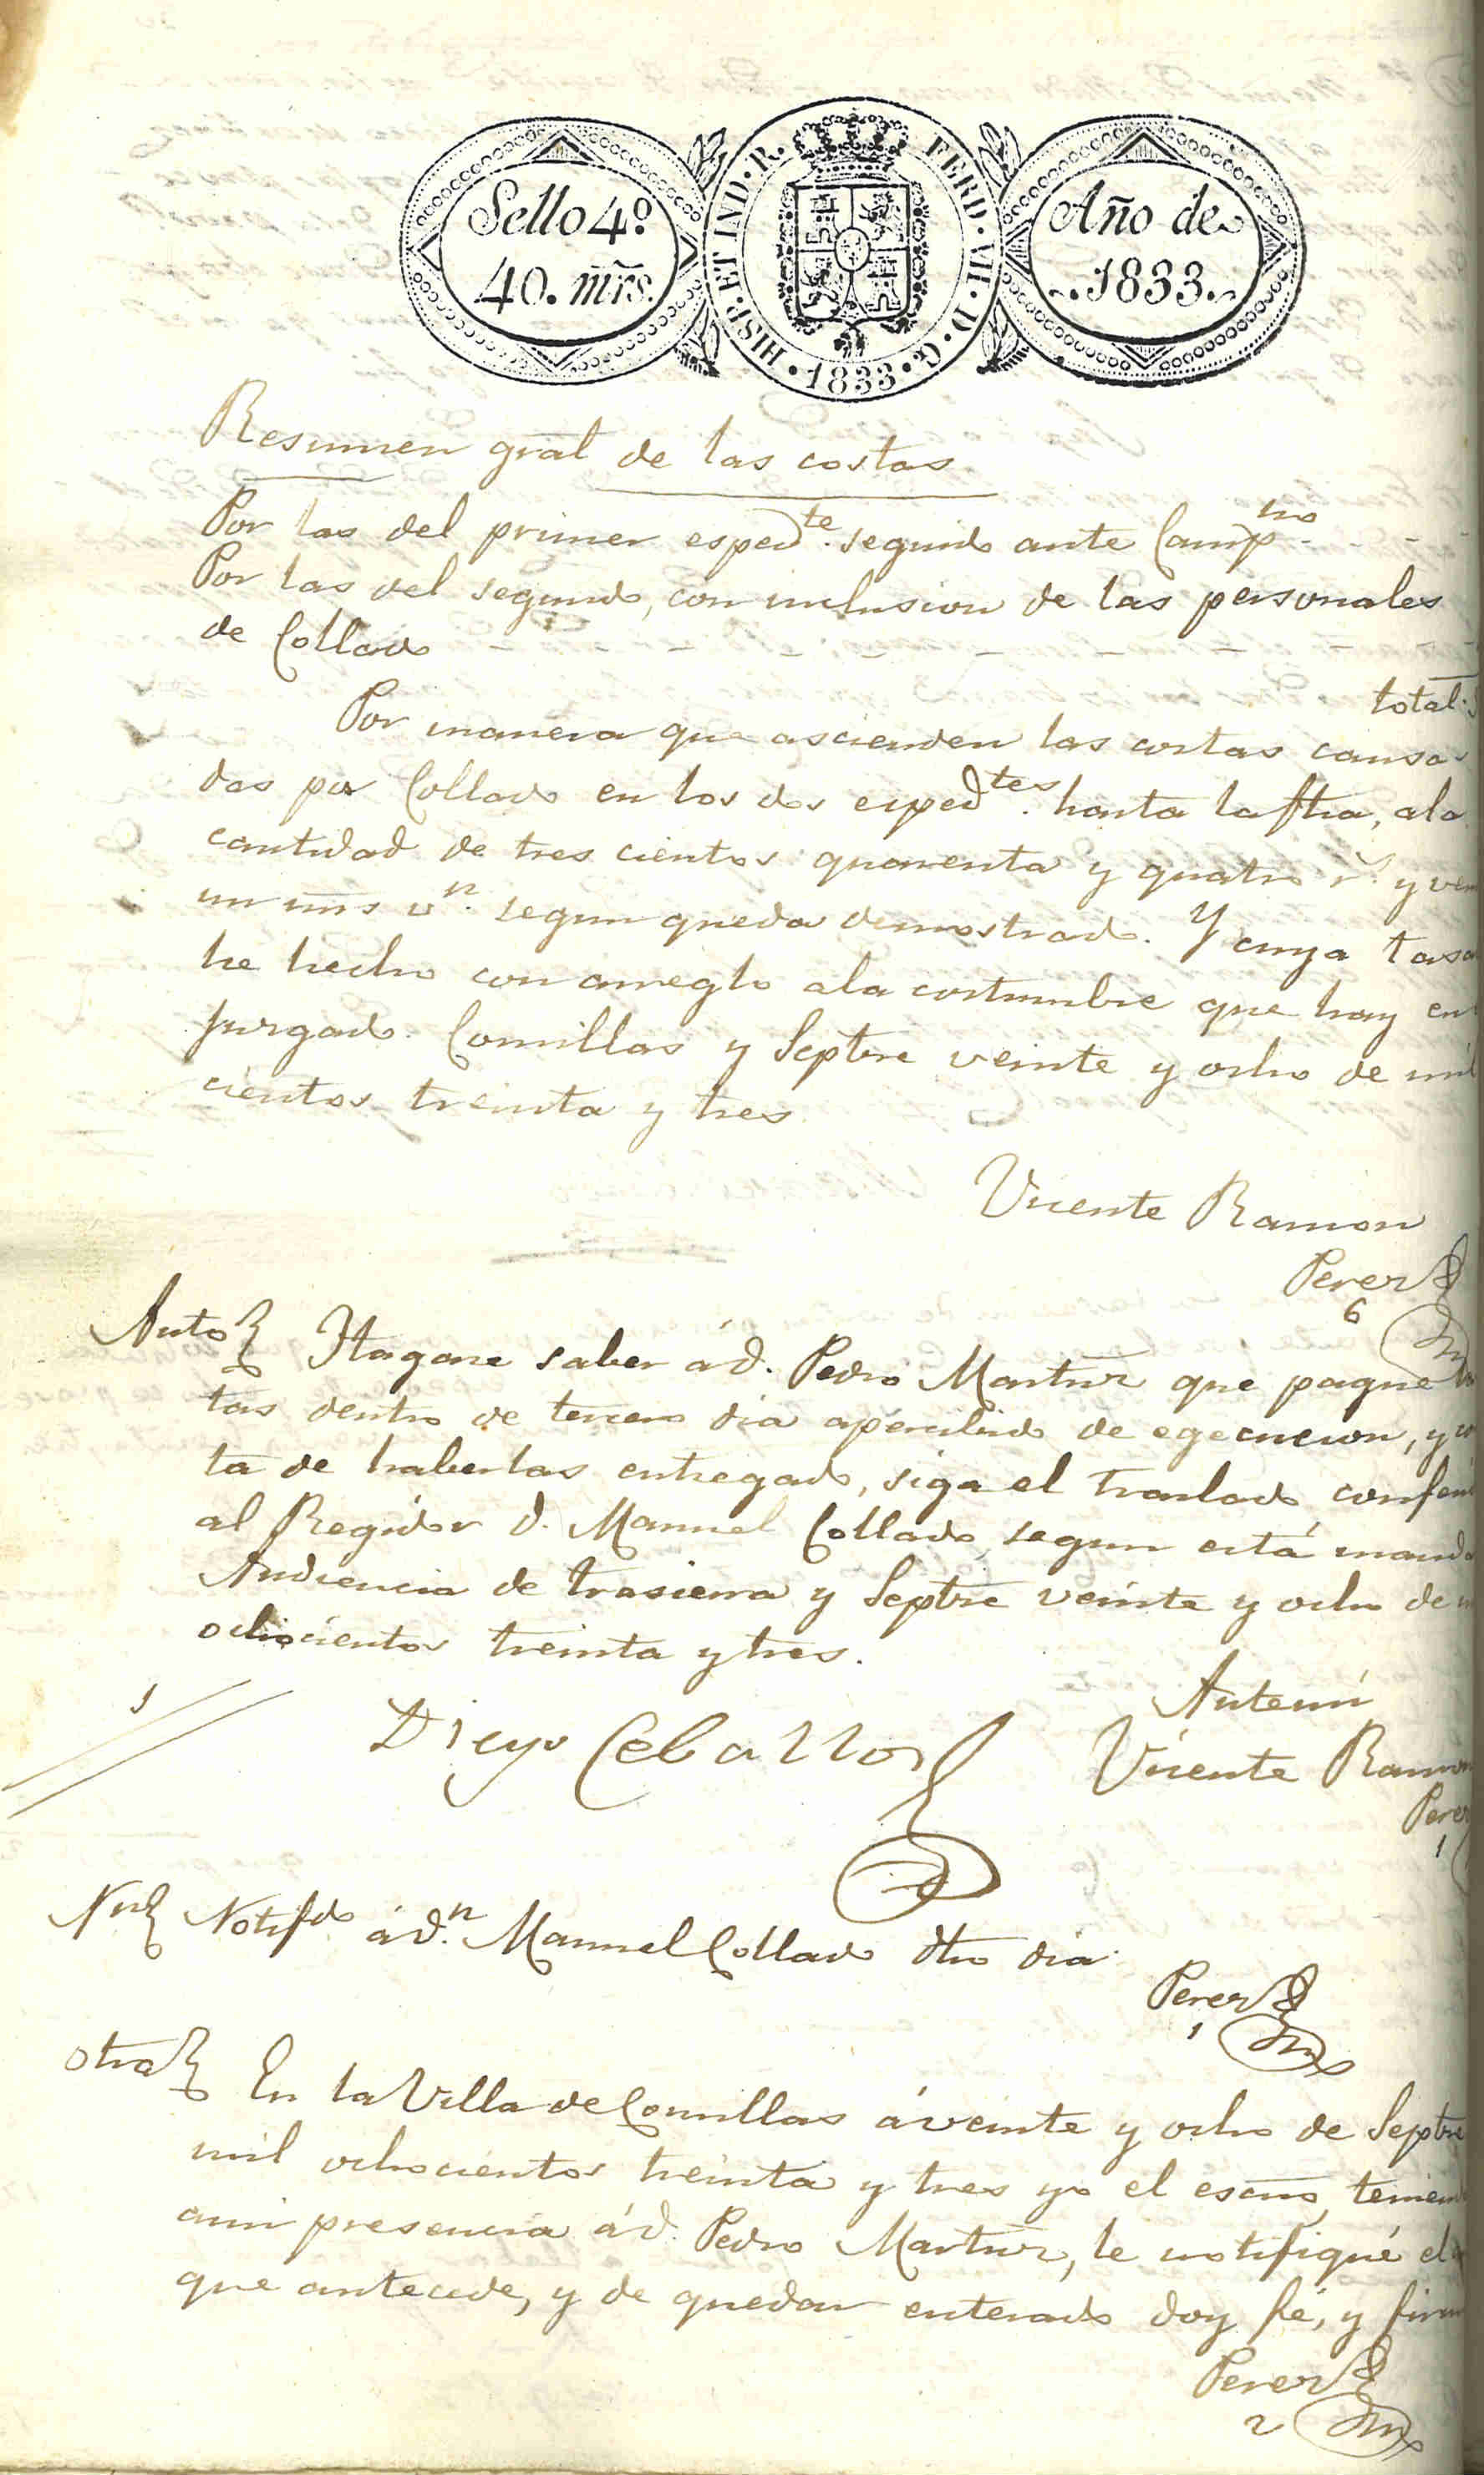 Sello 4º
40. mrs.
HISP. ET IND. R. FERD. VII. D. G. 1833.
Año de
1833.
Resumen gral de las costas
Por las del primer esped.te seguido ante Camp.no
Por las del segundo, con inclusion de las personales
de Collado
total
Por manera que ascienden las costas causa
das por Collado en los dos esped.tes hasta la fha, ala
cantidad de tres cientos quarenta y quatro r.s y
un mrs v.n segun queda demostrado. Y cuya
he hecho con arreglo ala costumbre que hay en
Juzgado. Comillas y Septre veinte y ocho de mil
cientos treinta y tres
Vicente Ramon
Perez
6
Auto
Hagase saber á d. Pedro Martinz que pague
tas dentro de tercero dia apercibido de egecucion, y
ta de haberlas entregado, siga el traslado
al Regidor d. Manuel Collado, segun está
Audiencia de trasierra y Septre veinte y ocho de
ochocientos treinta y tres.
1
Diego Ceballos
Antemi
Vicente Ramon
Perez
1
Notifdo á d.n Manuel Collado dho dia
Perez
1
otra
En la Villa de Comillas á veinte y ocho de Septre
mil ochocientos treinta y tres yo el escno,
ami presencia á d. Pedro Martinz, le notifiqué el
que antecede, y de quedar enterado doy fé, y
Perez
2